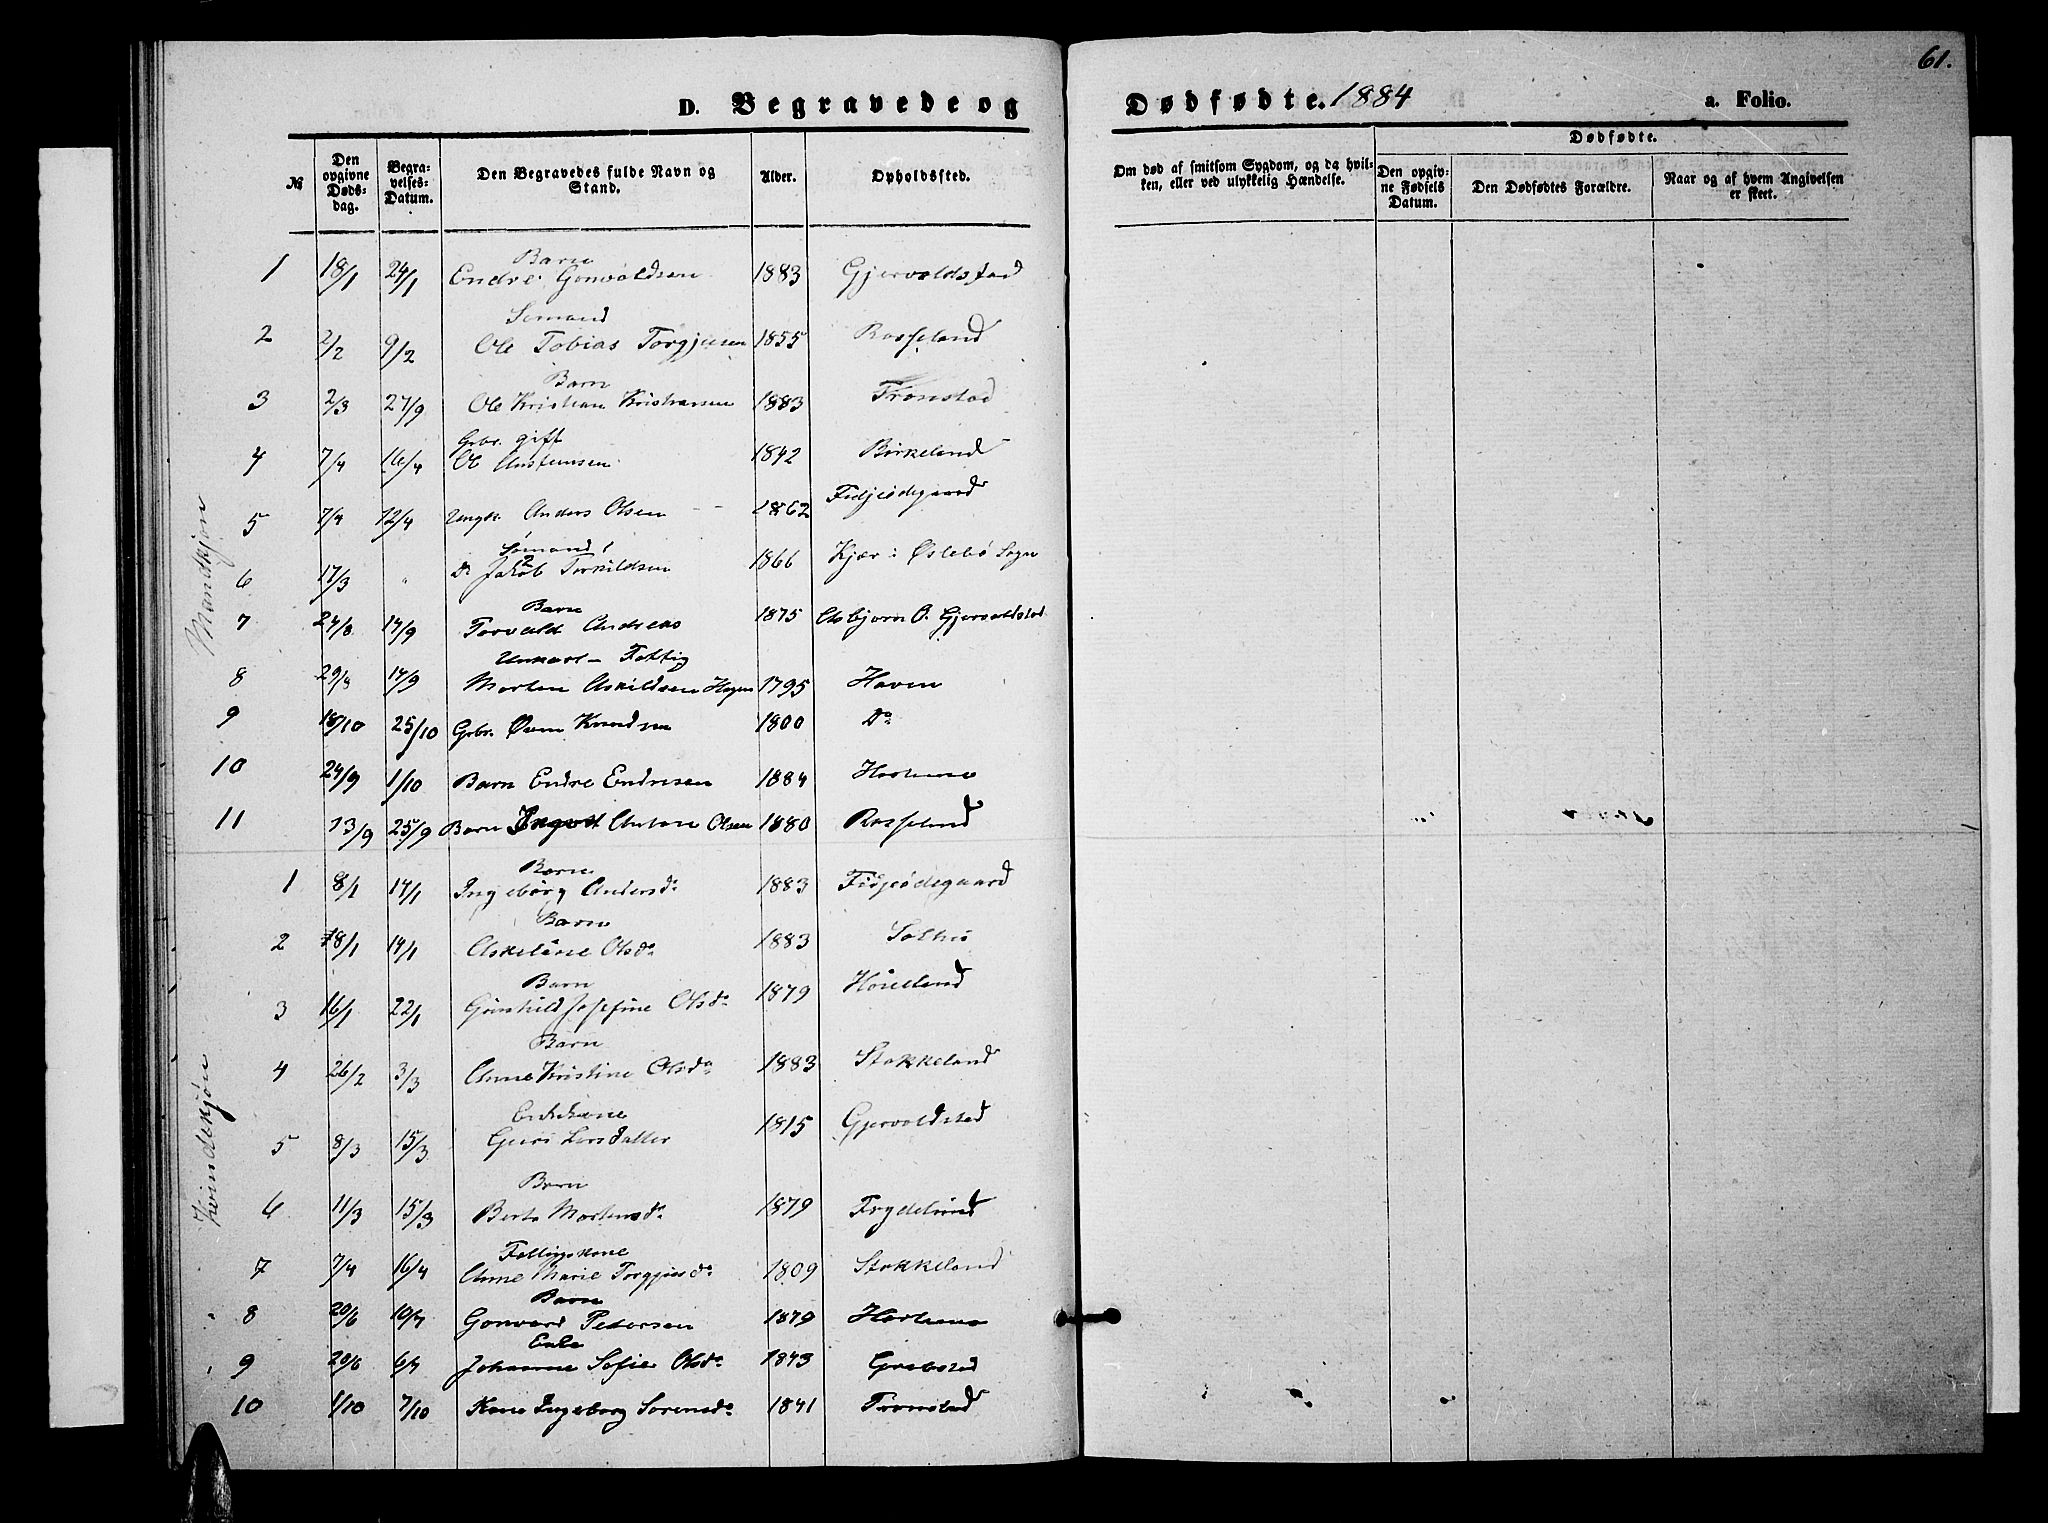 61.
D. Begravede og Dødfødte. 1884 a. Folio.
№ Den opgivne Døds-dag. Begra-velses-Datum. Den Begravedes fulde Navn og Stand. Alder. Opholdssted. Om død af smitsom Sygdom, og da hvil-ken, eller ved ulykkelig Hændelse. Dødfødte. Den opgiv-ne Fødsels Datum. Den Dødfødtes Forældre. Naar og af hvem Angivelsen er skeet.
Mandkjøn
Barn
1 18/1 24/1 Endre Gonvaldsen 1883 Gjervoldstad
Sømand
2 2/2 9/2 Ole Tobias Torgjusen 1855 Rosseland
Barn
3 2/3 27/9 Ole Kristian Kristiansen 1883 Tronstad
Gbr. gift
4 7/4 16/4 Ole Austensen 1842 Birkeland
5 7/4 12/4 Ungk. Anders Olsen 1862 Fidjeødegaard
Sømand
6 17/3 " Do Jakob Torkildsen 1866 Kjær i Øslebø Sogn
Barn
7 24/8 14/9 Torvald Andreas 1875 Asbjørn O. Gjervoldstad
Unkarl - Fattig
8 29/8 14/9 Morten Askildsen Hagen 1795 Haven
9 18/10 25/10 Gbr. Øven Knudsen 1800 Do
10 24/9 1/10 Barn Endre Endresen 1884
11 13/9 25/9 Barn Ingvald Anton Olsen 1880 Rosseland
Kvindekjøn
Barn
1 8/1 14/1 Ingeborg Andersdr 1883 Fidjeødegaard
Barn
2 8/1 14/1 Olsdr 1883
Barn
3 16/1 22/1 Gunhild Josefine Olsdr 1879
Barn
4 26/2 3/3 Anne Kristine Olsdr 1883 Stokkeland
Enkekone
5 8/3 15/3 Guri Larsdatter 1815 Gjervoldstad
Barn
6 11/3 15/3 Berte Mortensdr 1879 Frydelund
Fattigkone
7 7/4 16/4 Anne Marie Torgjusdr 1809 Stokkeland
Barn
8 20/6 10/7 Gonvard Petersen 1879
Enke
9 29/6 6/7 Johanne Sofie Olsdr 1843 Grebstad
10 1/10 7/10 Kone Ingeborg Sørensdr 1841 Tronstad